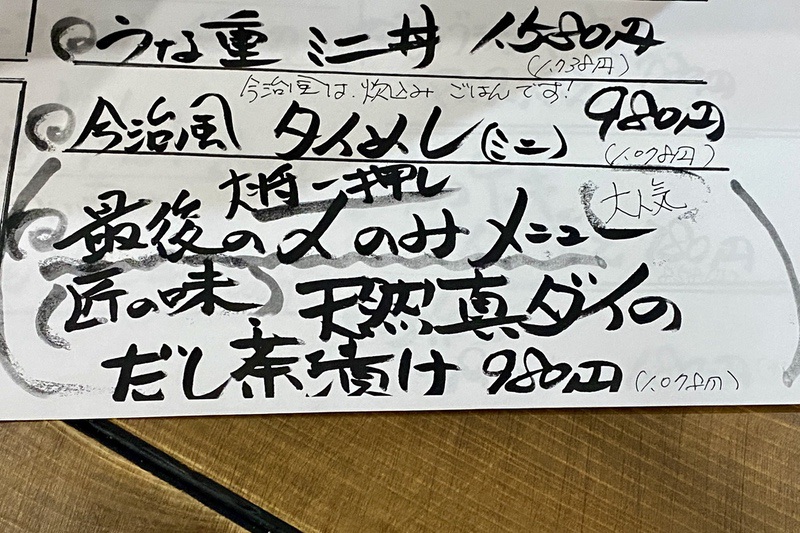 うな重 ミニ丼 1.580円
(1.738円)
今治風は、炊込み ごはんです!
今治風 タイめし(ミニ) 980円
(1.078円)
大将一押し
最後の〆のみメニュー 大人気
(匠の味) 天然真ダイの
だし茶漬け 980円 (1.078円)